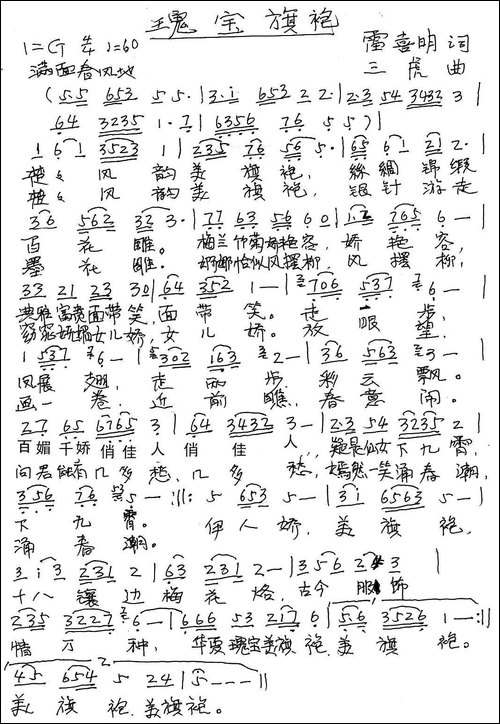 瑰宝旗袍
1=G 4/4 ♩=60 雷喜明 词
满面春风地 三虎 曲
( 5.5 653 5 5. | 3.i 653 2 2. | 2.3 54 3432 3 |
64 3235 1. 7 | 6356 76 5 5 ) |
1 6 1 3523 1 | 235 76 56 5. | 65 61 21 2. |
楚楚风韵美旗袍，丝绸锦缎
楚楚风韵美旗袍，银针游走
36 562 32 3. | 77 63 56 60 | 1.2 765 6 — |
百花雕。梅兰竹菊好艳容，娇艳容，
墨花雕。婀娜恰似风摆柳，风摆柳，
33 21 23 30 | 64 352 1 — | 706 537 6 — |
典雅富贵面带笑，面带笑。走一步，
窈窕妩媚女儿娇，女儿娇。放眼望，
1 537 6 — | 302 163 2 — | 36 563 3 — |
凤展翅，走两步彩云飘。
画一卷，近前瞧，春意闹。
27 65 6765 3 | 64 3432 3 — | 2.3 54 3235 2 |
百媚千娇俏佳人俏佳人，疑是仙女下九霄，
问君能有几多愁，几多愁，嫣然一笑涌春潮，
356 76 53 5 — :||: 5 653 5 — | 3i 6563 5 — |
下九霄。伊人娇，美旗袍，
涌春潮。
3 i 3 231 2 | 63 231 2 — | 356 2 3 |
十八镶边梅花烙，古今服饰
235 3227 6 — | 666 53 217 6 | 56 3526 1 — :||
情万种，华夏瑰宝美旗袍，美旗袍。
2
45 654 5 24 | 5 - - - ||
美旗袍，美旗袍。